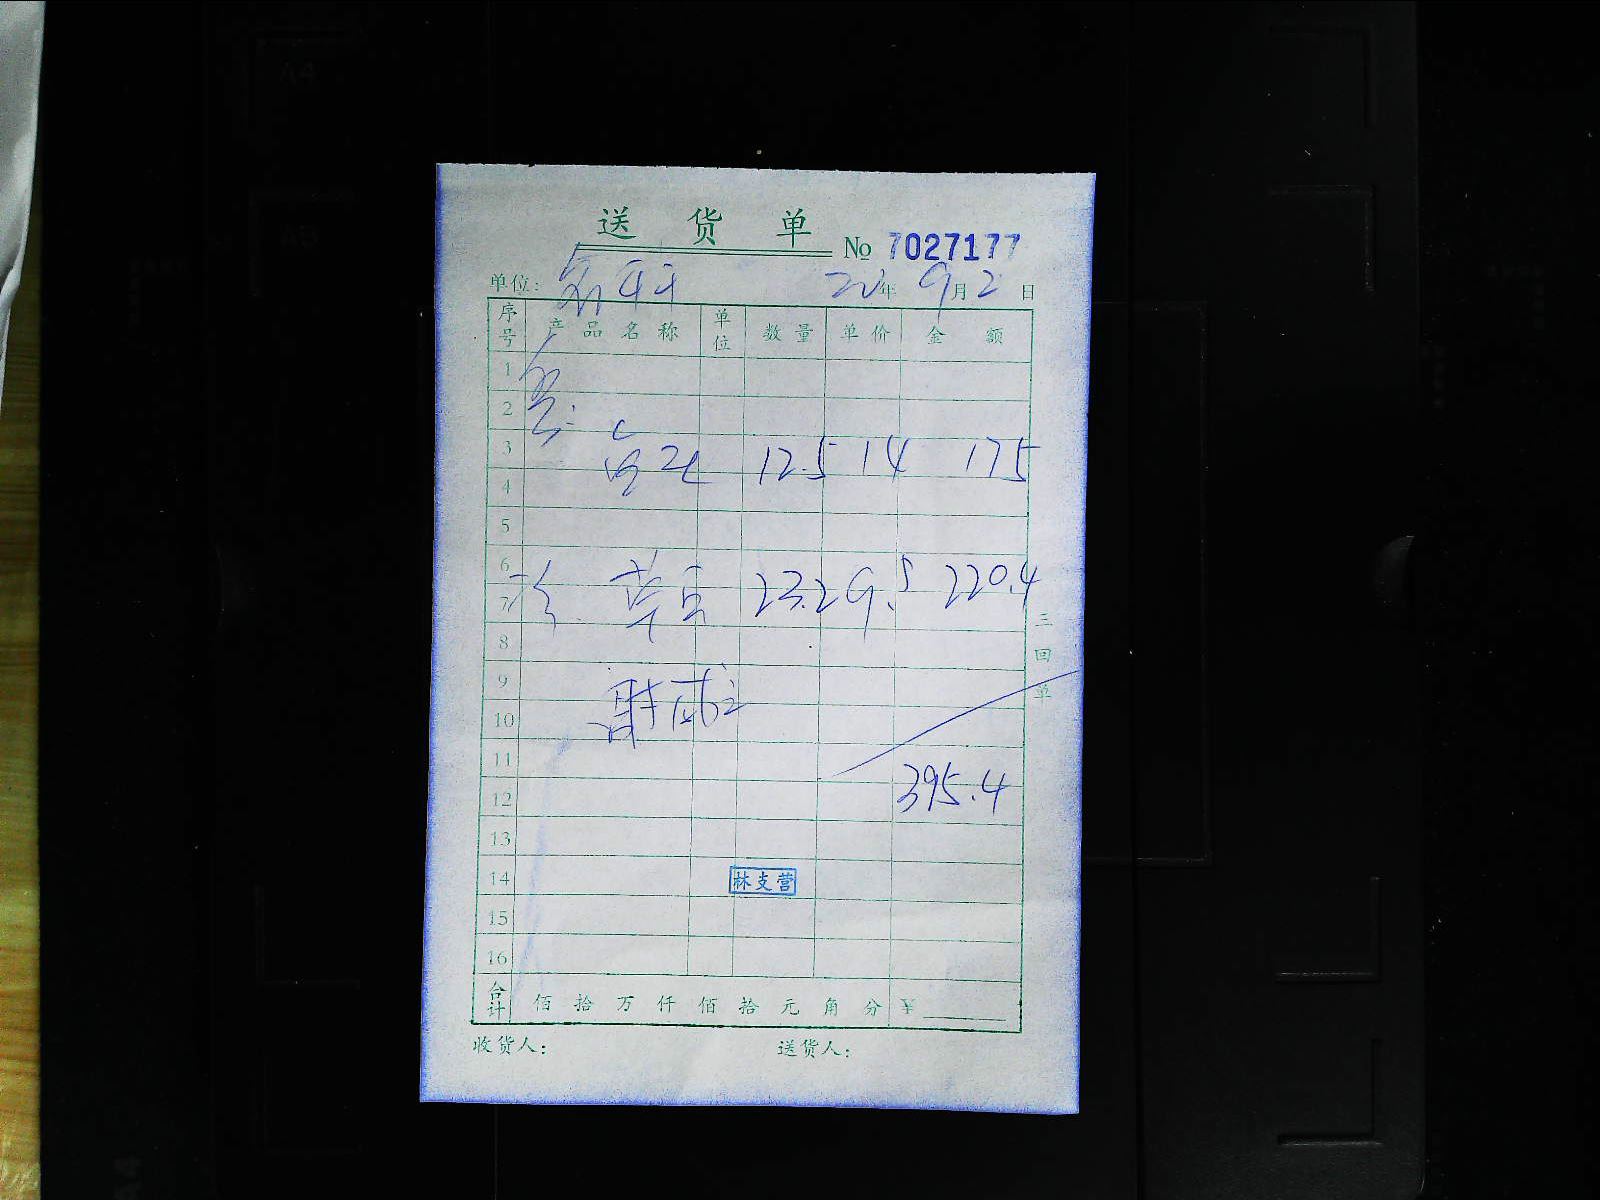 送货单
No 7027177
单位: 20年9月2日
序号 产品名称 单位 数量 单价 金额
1
2
3 12.5 14 175
4
5
6
7 草 23.2 9.5 220.4
8
9
10
11
12 395.4
13
14 林支营
15
16
合计 佰拾万仟佰拾元角分 ¥
收货人: 送货人:
三回单